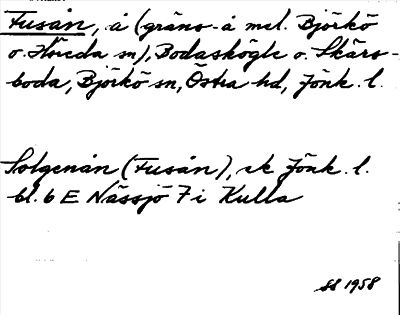 Fusån, å (gräns-å mel. Björkö
o. Hvieda sn), Bodaskögle o. Skärs-
boda, Björkö sn, Östra hd, Jönk. l.
Solgenån (Fusån), ek Jönk. l.
bl. 6 E Nässjö 7 i Kulla
SS 1958